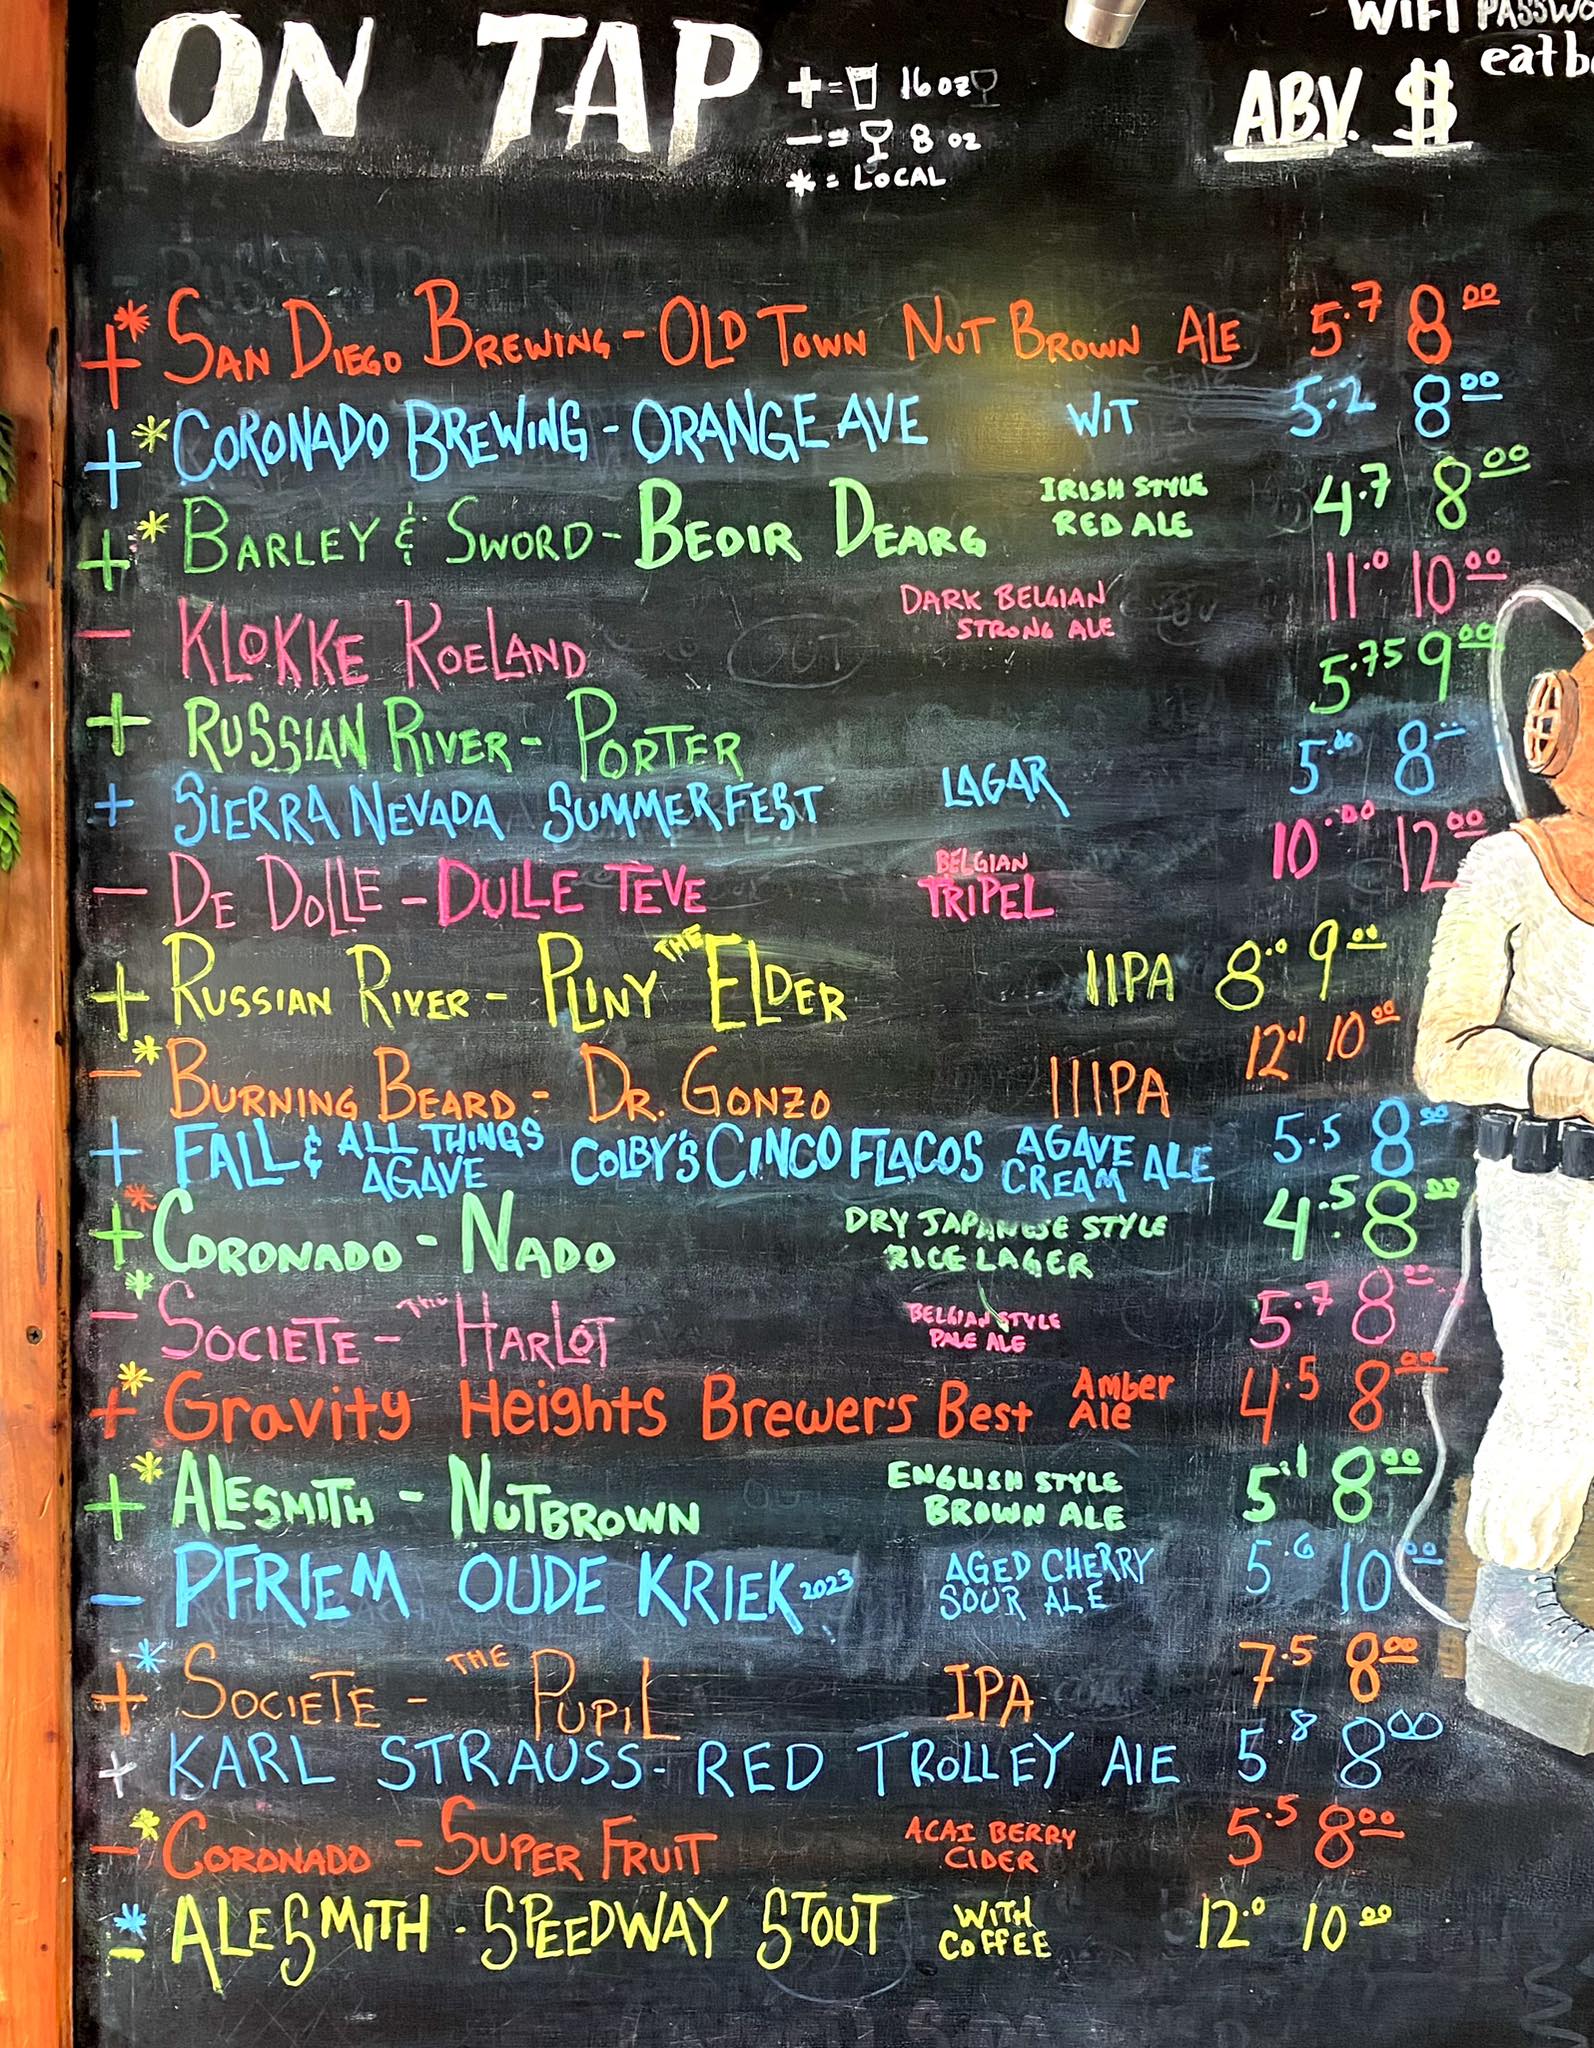 WIFI PASSWO
eatb
ON TAP
+ = 16 oz
- = 8 oz
* = LOCAL
A.B.V. $
+* SAN DIEGO BREWING - OLD TOWN NUT BROWN ALE 5.7 8.00
+* CORONADO BREWING - ORANGE AVE WIT 5.2 8.00
+* BARLEY & SWORD - BEOIR DEARG IRISH STYLE RED ALE 4.7 8.00
- KLOKKE ROELAND DARK BELGIAN STRONG ALE 11.0 10.00
+ RUSSIAN RIVER - PORTER 5.75 9.00
+ SIERRA NEVADA SUMMERFEST LAGAR 5.00 8.00
- DE DOLLE - DULLE TEVE BELGIAN TRIPEL 10.00 12.00
+ RUSSIAN RIVER - PLINY THE ELDER IIPA 8.0 9.00
-* BURNING BEARD - DR. GONZO IIIPA 12.1 10.00
+ FALL & ALL THINGS AGAVE COLBY'S CINCO FLACOS AGAVE CREAM ALE 5.5 8.00
+* CORONADO - NADO DRY JAPANESE STYLE RICE LAGER 4.5 8.00
-* SOCIETE - THE HARLOT BELGIAN STYLE PALE ALE 5.7 8.00
+* Gravity Heights Brewer's Best Amber Ale 4.5 8.00
+* ALESMITH - NUTBROWN ENGLISH STYLE BROWN ALE 5.1 8.00
- PFRIEM OUDE KRIEK 2023 AGED CHERRY SOUR ALE 5.6 10.00
+* SOCIETE - THE PUPIL IPA 7.5 8.00
+ KARL STRAUSS - RED TROLLEY AlE 5.8 8.00
-* CORONADO - SUPER FRUIT ACAI BERRY CIDER 5.5 8.00
-* ALESMITH - SPEEDWAY STOUT WITH COFFEE 12.0 10.00